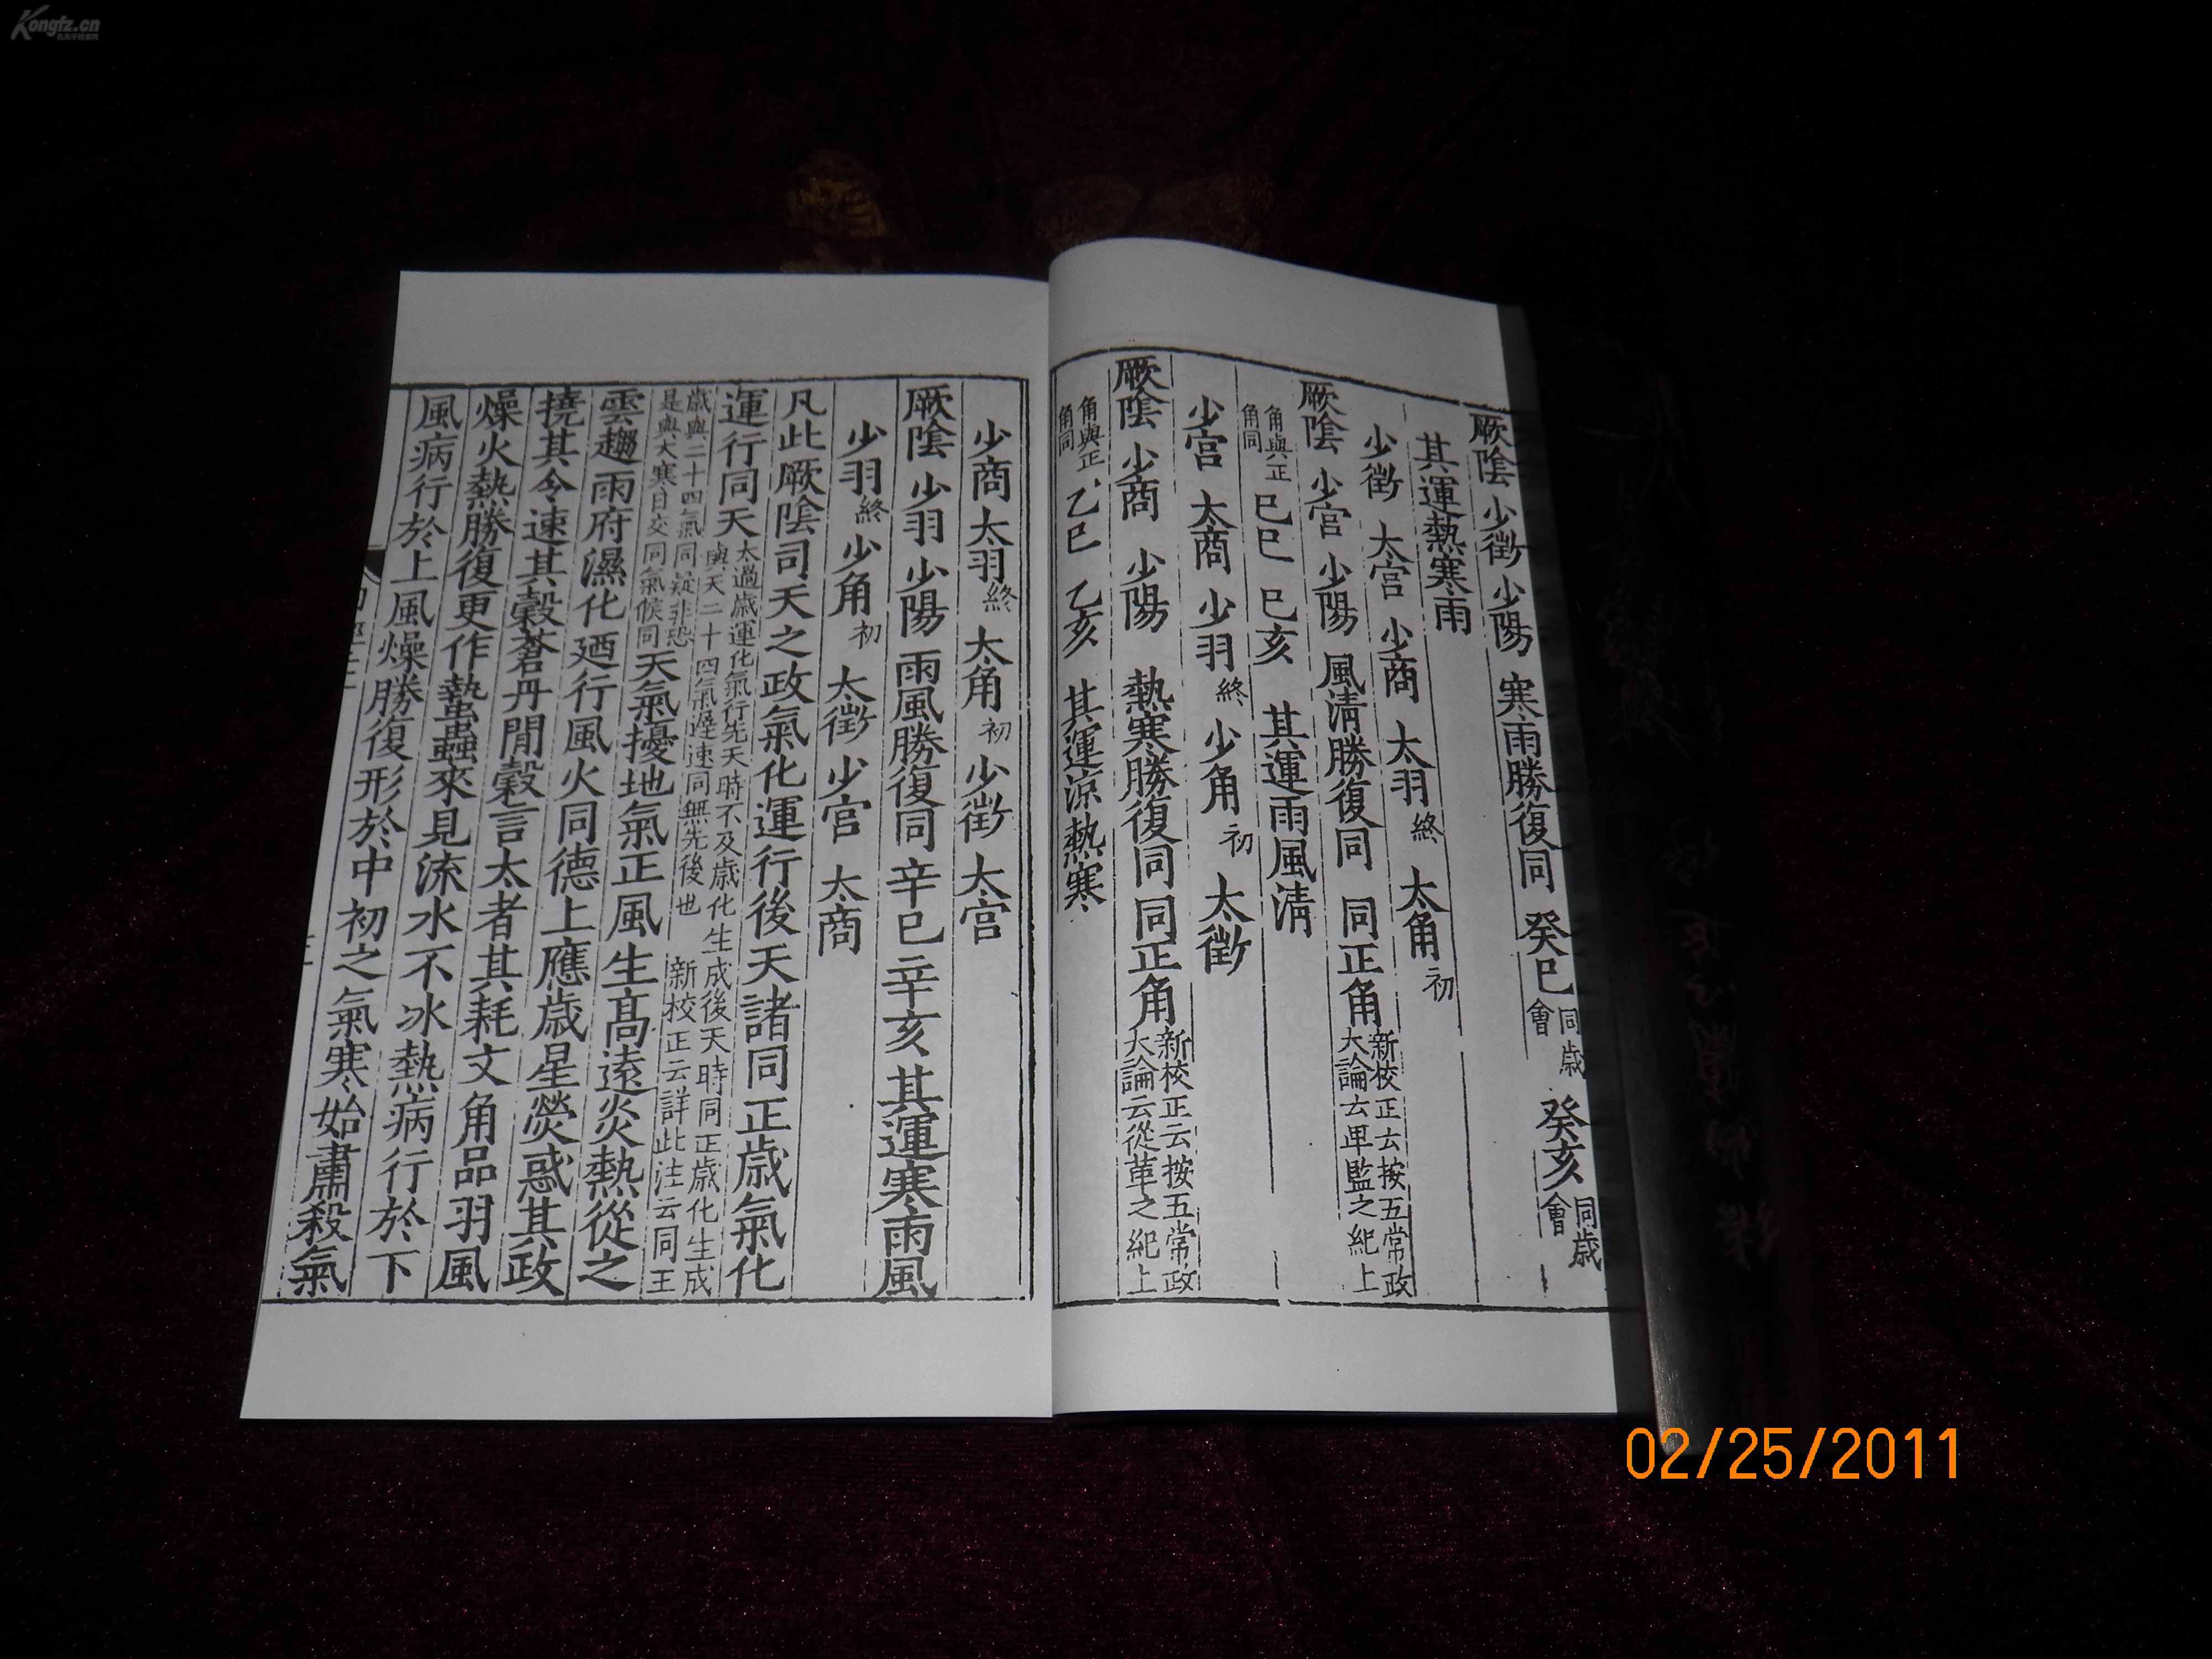 Kongfz.cn
厥陰 少徵 少陽 寒雨勝復同 癸巳 同歲會 癸亥 同歲會
其運熱寒雨
少徵 太宮 少商 太羽終 太角初
厥陰 少宮 少陽 風清勝復同 同正角 新校正云按五常政大論云卑監之紀上
角與正角同 己巳 己亥 其運雨風清
少宮 太商 少羽終 少角初 太徵
厥陰 少商 少陽 熱寒勝復同 同正角 新校正云按五常政大論云從革之紀上
角與正角同 乙巳 乙亥 其運涼熱寒
少商 太羽終 太角初 少徵 太宮
厥陰 少羽 少陽 雨風勝復同 辛巳 辛亥 其運寒雨風
少羽終 少角初 太徵 少宮 太商
凡此厥陰司天之政氣化運行後天諸同正歲氣化
運行同天太過歲運化氣行先天時不及歲化生成後天時同正歲化生成與天二十四氣遲速同無先後也 新校正云詳此注云同王
歲與二十四氣同疑非恐是與大寒日交同氣候同天氣擾地氣正風生高遠炎熱從之
雲趨雨府濕化廼行風火同德上應歲星熒惑其政
撓其令速其穀蒼丹間穀言太者其耗文角品羽風
燥火熱勝復更作蟄蟲來見流水不冰熱病行於下
風病行於上風燥勝復形於中初之氣寒始肅殺氣
02/25/2011